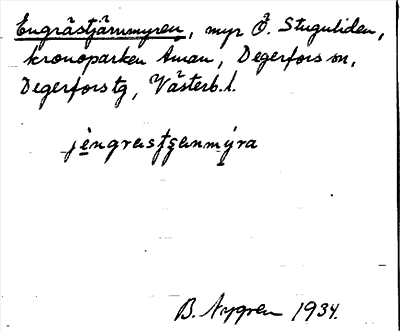 Engrästjärnmyren, myr Ö. Stuguliden,
kronoparken Aman, Degerfors sn,
Degerfors tg, Västerb. l.
jèngrɛstʃɛnmýra
B. Nygren 1934.